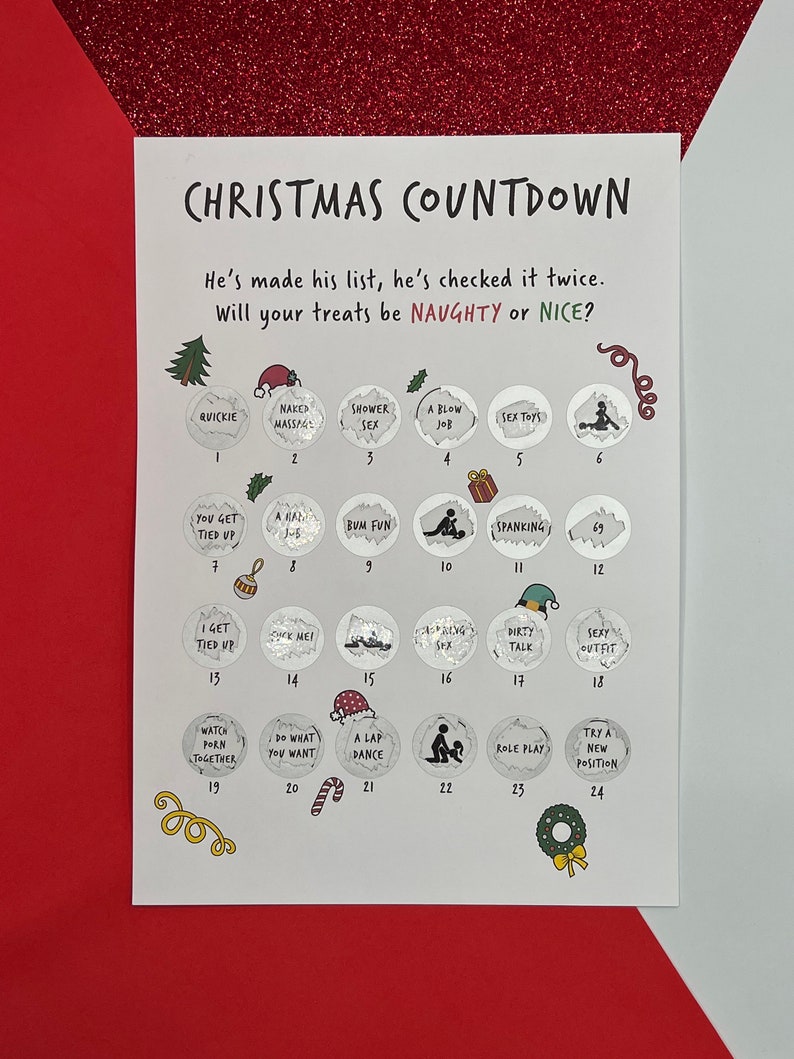 CHRISTMAS COUNTDOWN
He's made his list, he's checked it twice.
Will your treats be NAUGHTY or NICE?
QUICKIE
NAKED
MASSAGE
SHOWER
SEX
A BLOW
JOB
SEX TOYS
1
2
3
4
5
6
YOU GET
TIED UP
A HAND
JOB
BUM FUN
SPANKING
69
7
8
9
10
11
12
I GET
TIED UP
FUCK ME!
MORNING
SEX
DIRTY
TALK
SEXY
OUTFIT
13
14
15
16
17
18
WATCH
PORN
TOGETHER
DO WHAT
YOU WANT
A LAP
DANCE
ROLE PLAY
TRY A
NEW
POSITION
19
20
21
22
23
24